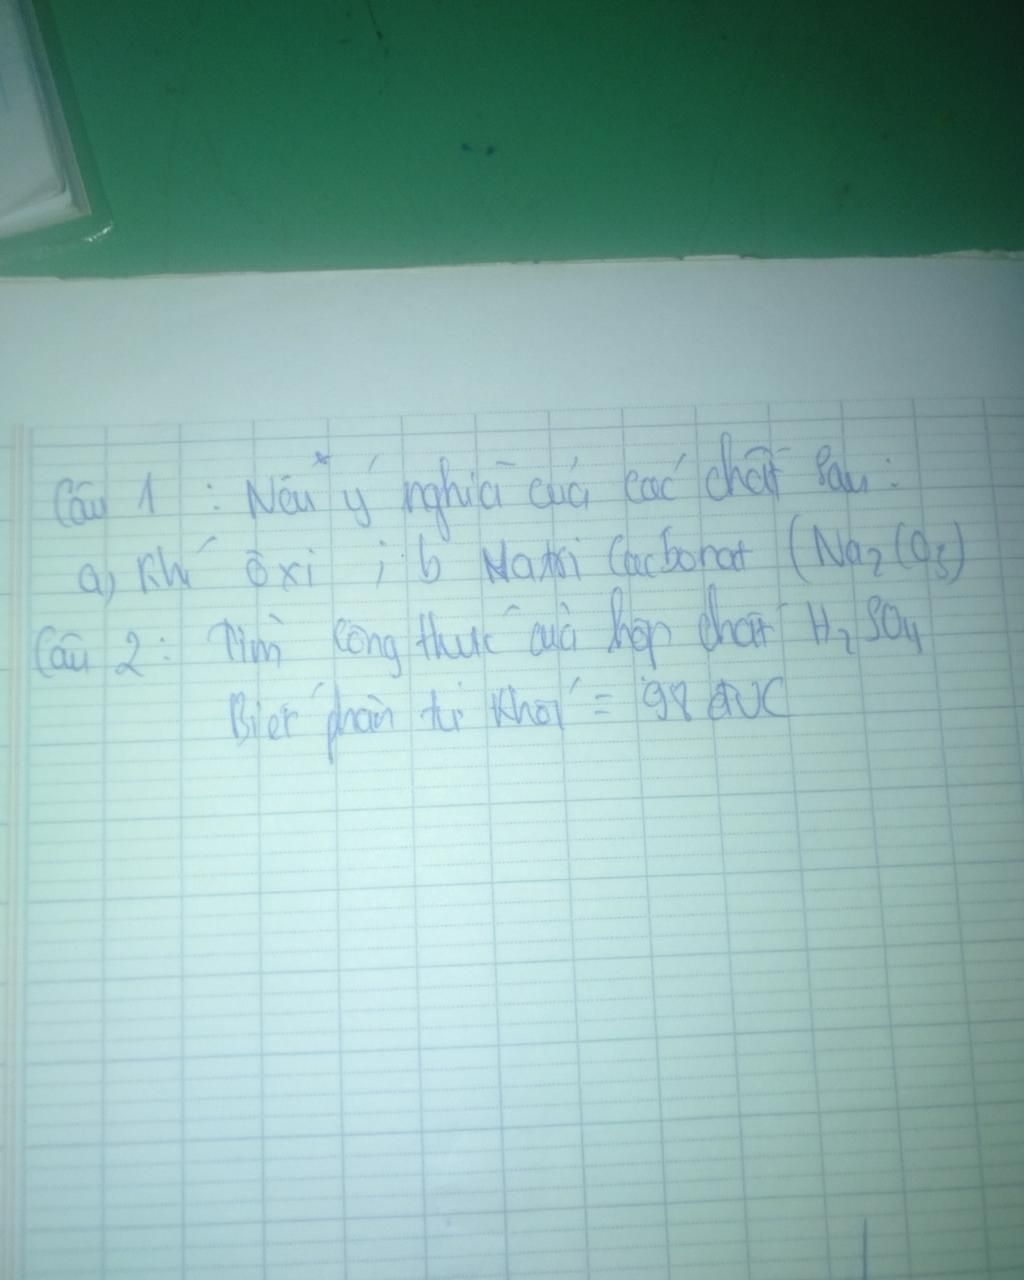 Câu 1 : Nêu ý nghĩa của các chất sau :
a, Khí ôxi ; b Natri Cacbonat (Na2CO3)
Câu 2 : Tìm công thức của hợp chất H2SO4
Biết phân tử khối = 98 đvC